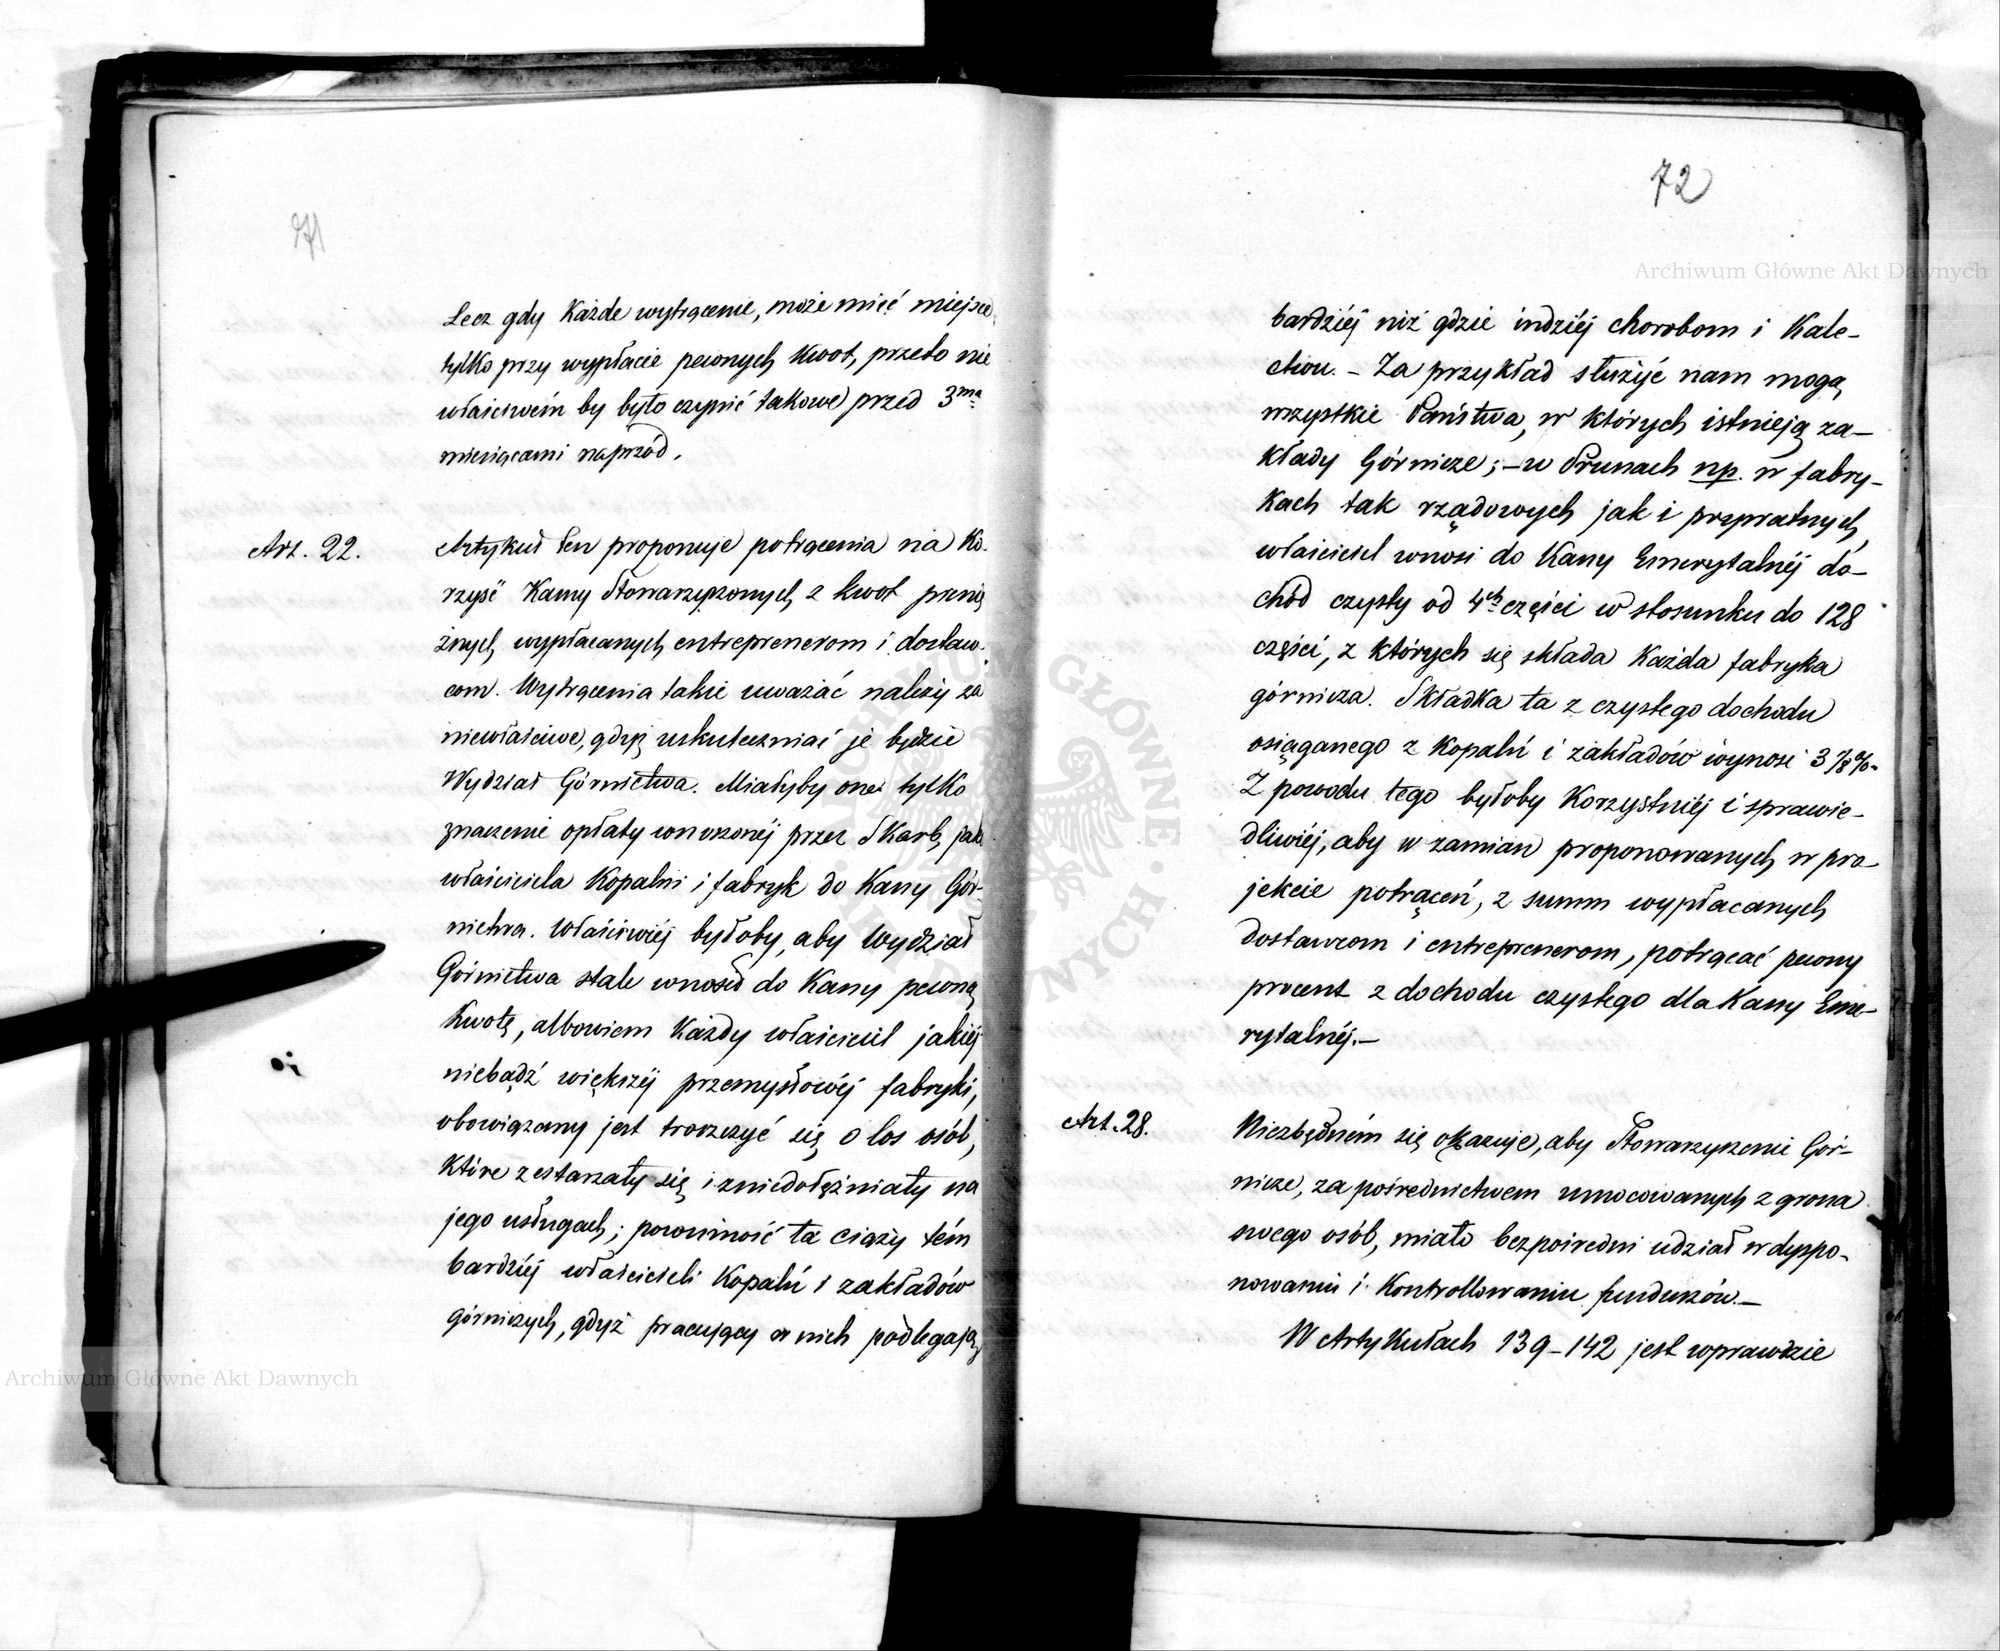 71
Lecz gdy Każde wytrącenie, może mieć miejsce
tylko przy wypłacie pewnych Kwot, przeto nie
właściwém by było czynić takowe przed 3ma
miesiącami naprzód.
Art. 22.
Artykuł ten proponuje potrącenia na Ko-
rzyść Kassy Stowarzyszonych, z kwot pienię
żnych, wypłacanych entreprenerom i dostaw-
com. Wytrącenia takie uważać należy za
niewłaściwe, gdyż uskuteczniać je będzie
Wydział Górnictwa. Miałyby one tylko
znaczenie opłaty wnoszonéj przez Skarb, jako
właściciela Kopalni i fabryk do Kassy Gór-
nictwa. Właściwiéj byłoby, aby Wydział
Górnictwa stale wnosił do Kassy pewną
Kwotę, albowiem Każdy właściciel jakiéj
niebądź większéj przemysłowéj fabryki,
obowiązany jest troszczyć się o los osób,
Które zestarzały się i zniedołężniały na
jego usługach; powinność ta ciąży tém
bardziéj właścicieli Kopalń i zakładów
górniczych, gdyż pracujący w nich podlegają
72
bardziéj niż gdzie indziéj chorobom i Kale-
ctwu. – Za przykład służyć nam mogą
wszystkie Państwa, w których istnieją za-
kłady Górnicze; – w Prusach np. w fabry-
Kach tak rządowych jak i prywatnych,
właściciel wnosi do Kassy Emerytalnéj do-
chód czysty od 4ch części w stosunku do 128
części, z których się składa Każda fabryka
górnicza. Składka ta z czystego dochodu
osiąganego z Kopalń i zakładów wynosi 3 1/8 %.
Z powodu tego byłoby Korzystniéj i sprawie-
dliwiéj, aby w zamian proponowanych w pro-
jekcie potrąceń, z summ wypłacanych
dostawcom i entreprenerom, potrącać pewny
procent z dochodu czystego dla Kassy Eme-
rytalnéj. –
Art. 28.
Niezbędném się okazuje, aby Stowarzyszenie Gór-
nicze, za pośrednictwem umocowanych z grona
swego osób, miało bezpośredni udział w dyspo-
nowaniu i Kontrollowaniu funduszów. –
W Artykułach 139–142 jest wprawdzie
Archiwum Główne Akt Dawnych
Archiwum Główne Akt Dawnych